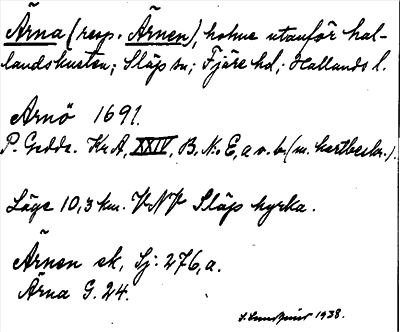 Ärna (resp. Ärnen), holme utanför hal-
landskusten; Släp sn; Fjäre hd; Hallands l.
Arnö 1691.
P. Gedda. Kr.A, XXIV, B, N:o E, a o. b. (m. kartbeskr.).
Läge 10,3 km. VNV Släp kyrka.
Ärnen ek. Sj: 276, a.
Ärna G. 24.
1938.